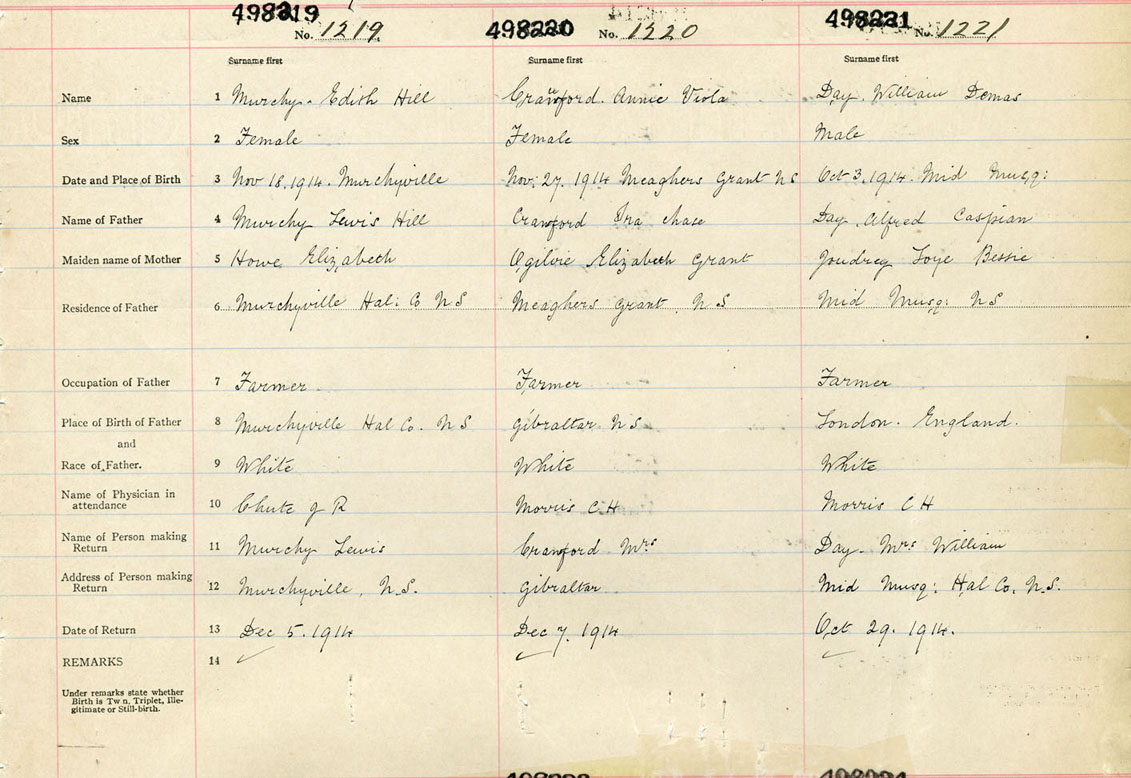 498219 498220 498221
No. 1219 No. 1220 No. 1221
Surname first Surname first Surname first
Name 1 Murchy. Edith Hill Crawford. Annie Viola Day. William Demas
Sex 2 Female Female Male
Date and Place of Birth 3 Nov 18, 1914. Murchyville Nov. 27. 1914 Meaghers Grant NS Oct 3, 1914. Mid Musq:
Name of Father 4 Murchy Lewis Hill Crawford Ira Chase Day. Alfred Caspian
Maiden name of Mother 5 Howe Elizabeth Ogilvie Elizabeth Grant Joudrey Loye Bessie
Residence of Father 6 Murchyville Hal: Co NS Meaghers Grant NS Mid Musq: NS
Occupation of Father 7 Farmer Farmer Farmer
Place of Birth of Father 8 Murchyville Hal Co. NS Gibraltar NS London. England.
and
Race of Father. 9 White White White
Name of Physician in
attendance 10 Chute J R Morris C H Morris C H
Name of Person making
Return 11 Murchy Lewis Crawford Mrs Day. Mrs William
Address of Person making
Return 12 Murchyville, N.S. Gibraltar Mid Musq: Hal Co. N.S.
Date of Return 13 Dec 5. 1914 Dec 7. 1914 Oct 29. 1914.
REMARKS 14 ✓ ✓ ✓
Under remarks state whether
Birth is Tw n, Triplet, Ille-
gitimate or Still-birth.